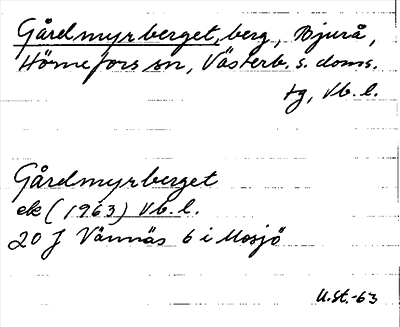 Gårdmyrberget, berg, Bjurå,
Hörnefors sn, Västerb. s. doms.
tg, Vb. l.
Gårdmyrberget
ek (1963) Vb. l.
20 J Vännäs 6 i Mosjö
U.St.-63